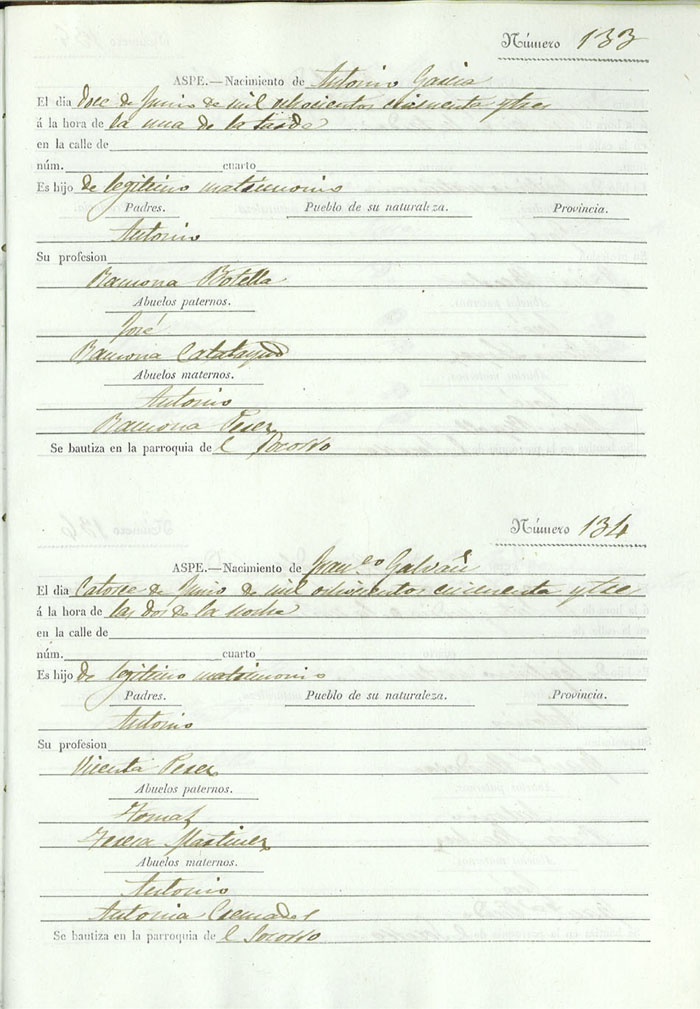 Número 133
ASPE.—Nacimiento de Antonio Garcia
El dia doce de Junio de mil ochocientos cincuenta y tres
á la hora de la una de la tarde
en la calle de
núm. cuarto
Es hijo de legitimo matrimonio
Padres. Pueblo de su naturaleza. Provincia.
Antonio
Su profesion
Ramona Botella
Abuelos paternos.
José
Ramona Calatayud
Abuelos maternos.
Antonio
Ramona Perez
Se bautiza en la parroquia de el Socorro
Número 134
ASPE.—Nacimiento de Franco Galvañ
El dia Catorce de Junio de mil ochocientos cincuenta y tres
á la hora de las dos de la noche
en la calle de
núm. cuarto
Es hijo de legitimo matrimonio
Padres. Pueblo de su naturaleza. Provincia.
Antonio
Su profesion
Vicenta Perez
Abuelos paternos.
Tomas
Teresa Martinez
Abuelos maternos.
Antonio
Antonia Cremades
Se bautiza en la parroquia de el Socorro